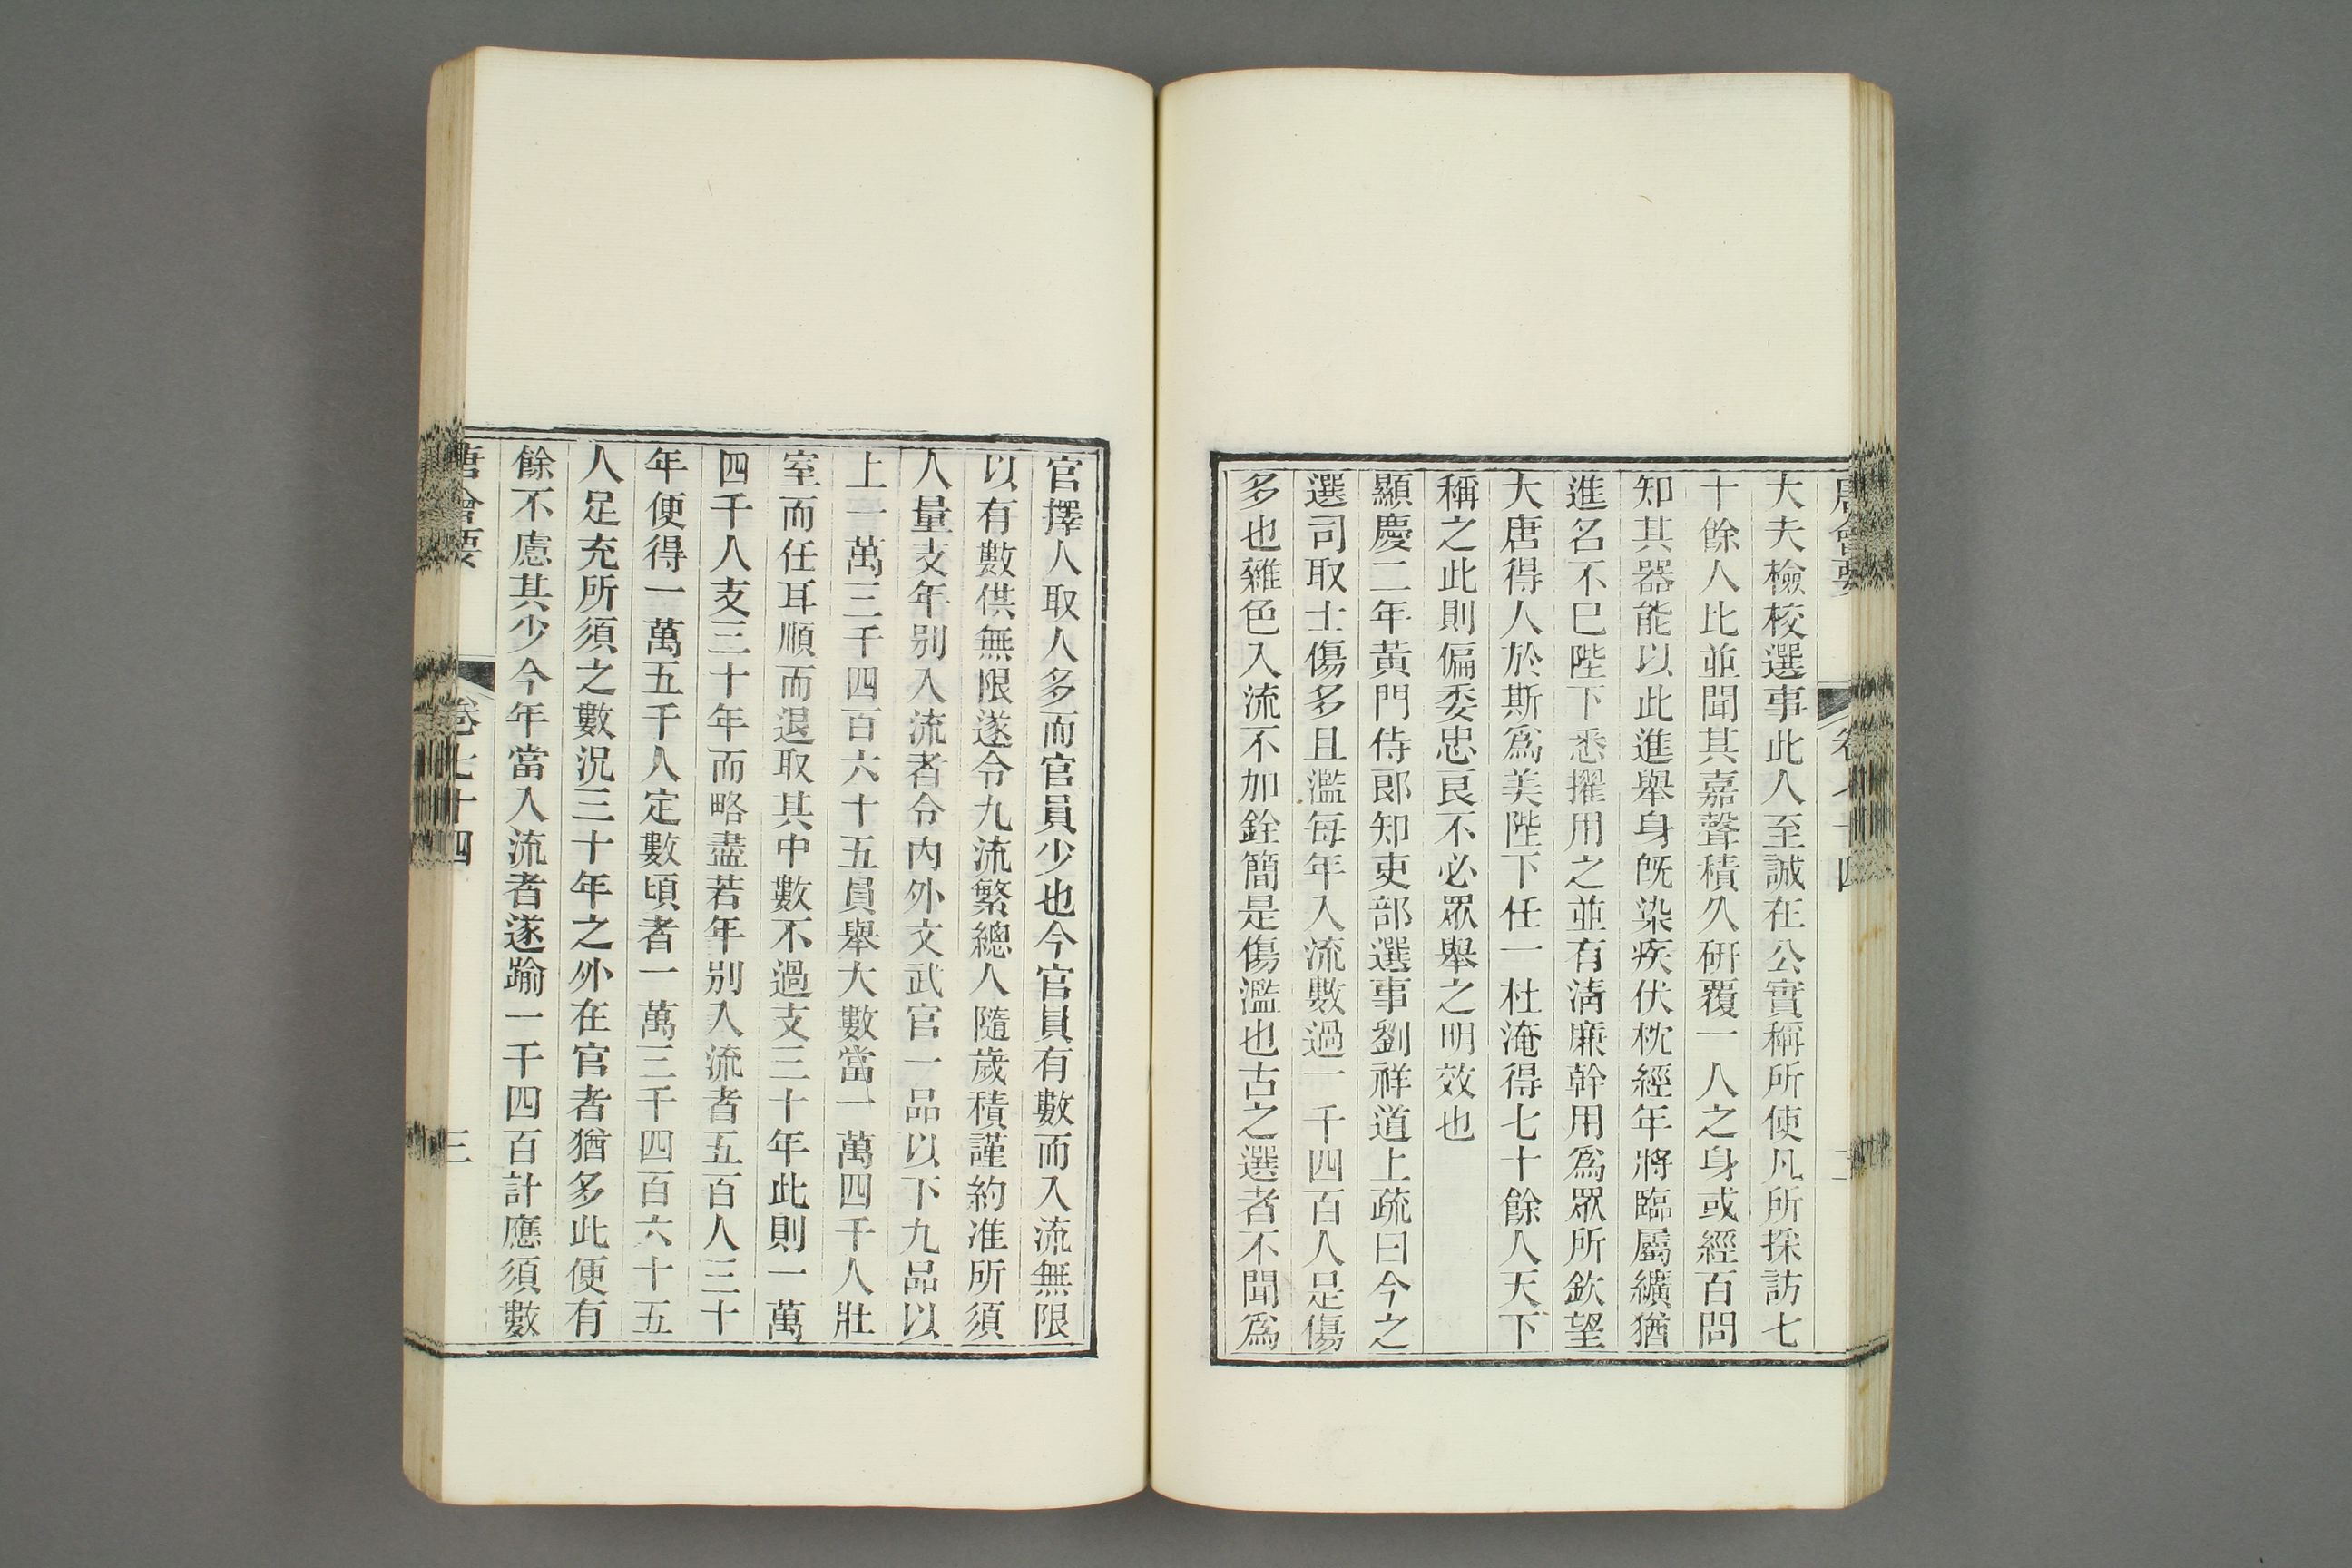 唐會要 卷七十四 二
大夫檢校選事此人至誠在公實稱所使凡所採訪七
十餘人比並聞其嘉聲積久研覆一人之身或經百問
知其器能以此進舉身旣染疾伏枕經年將臨屬纊猶
進名不巳陛下悉擢用之並有淸廉幹用爲眾所欽望
大唐得人於斯爲美陛下任一杜淹得七十餘人天下
稱之此則偏委忠良不必眾舉之明效也
顯慶二年黃門侍郎知吏部選事劉祥道上疏曰今之
選司取士傷多且濫每年入流數過一千四百人是傷
多也雜色入流不加銓簡是傷濫也古之選者不聞爲
官擇人取人多而官員少也今官員有數而入流無限
以有數供無限遂令九流繁總人隨歲積謹約准所須
人量支年別入流者令內外文武官一品以下九品以
上一萬三千四百六十五員舉大數當一萬四千人壯
室而任耳順而退取其中數不過支三十年此則一萬
四千人支三十年而略盡若年別入流者五百人三十
年便得一萬五千人定數頃者一萬三千四百六十五
人足充所須之數況三十年之外在官者猶多此便有
餘不慮其少今年當入流者遂踰一千四百計應須數
唐會要 卷七十四 三